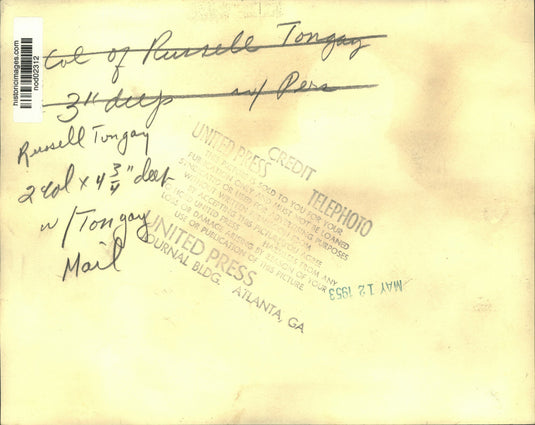 historicimages.com
nod02312
Col of Russell Tongay
3" deep w/ Pers
Russell Tongay
2 col x 4 3/4 " deep
w/ Tongay
Mail
UNITED PRESS
CREDIT
TELEPHOTO
THIS PICTURE IS SOLD TO YOU FOR YOUR
PUBLICATION ONLY AND MUST NOT BE LOANED
SYNDICATED OR USED FOR ADVERTISING PURPOSES
WITHOUT WRITTEN PERMISSION
BY ACCEPTING THIS PICTURE YOU AGREE
UNITED PRESS HARMLESS FROM ANY
LOSS OR DAMAGE ARISING BY REASON OF YOUR
USE OR PUBLICATION OF THIS PICTURE
UNITED PRESS
JOURNAL BLDG. ATLANTA, GA
MAY 12 1953